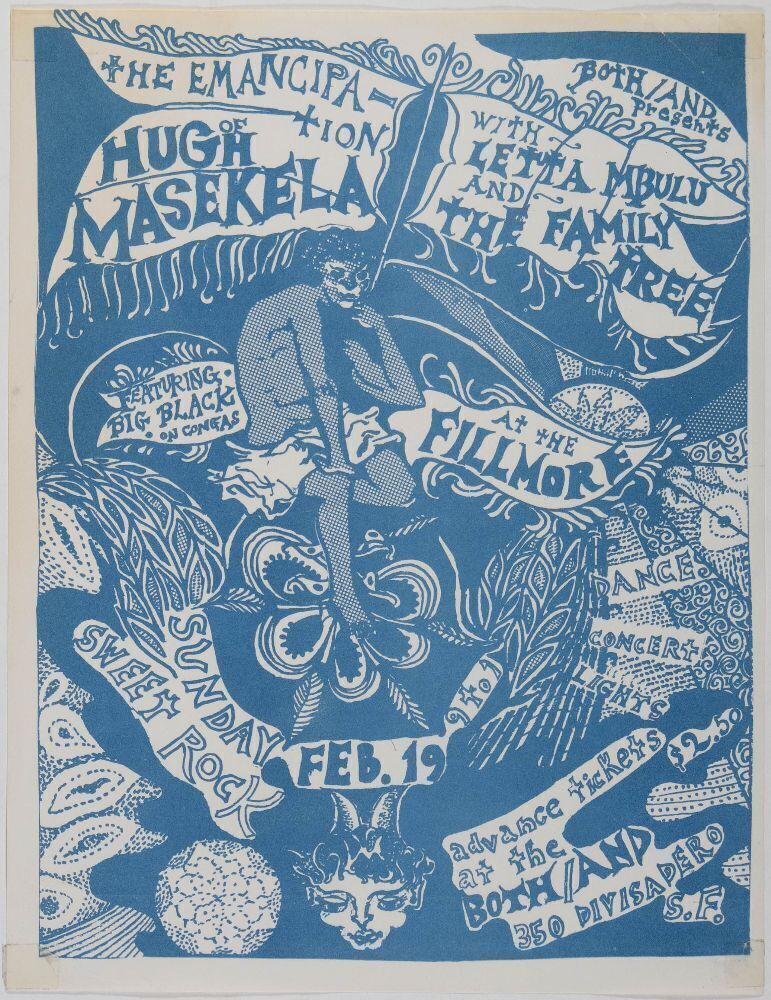 THE EMANCIPA-
TION
OF
HUGH
MASEKELA
BOTH/AND
Presents
WITH
LETTA MBULU
AND
THE FAMILY
TREE
FEATURING
BIG BLACK
ON CONGAS
AT THE
FILLMORE
DANCE
CONCERT
LIGHTS
SUNDAY
SWEET ROCK
FEB. 19
9 to 1
advance tickets $2.50
at the
BOTH/AND
350 DIVISADERO
S.F.